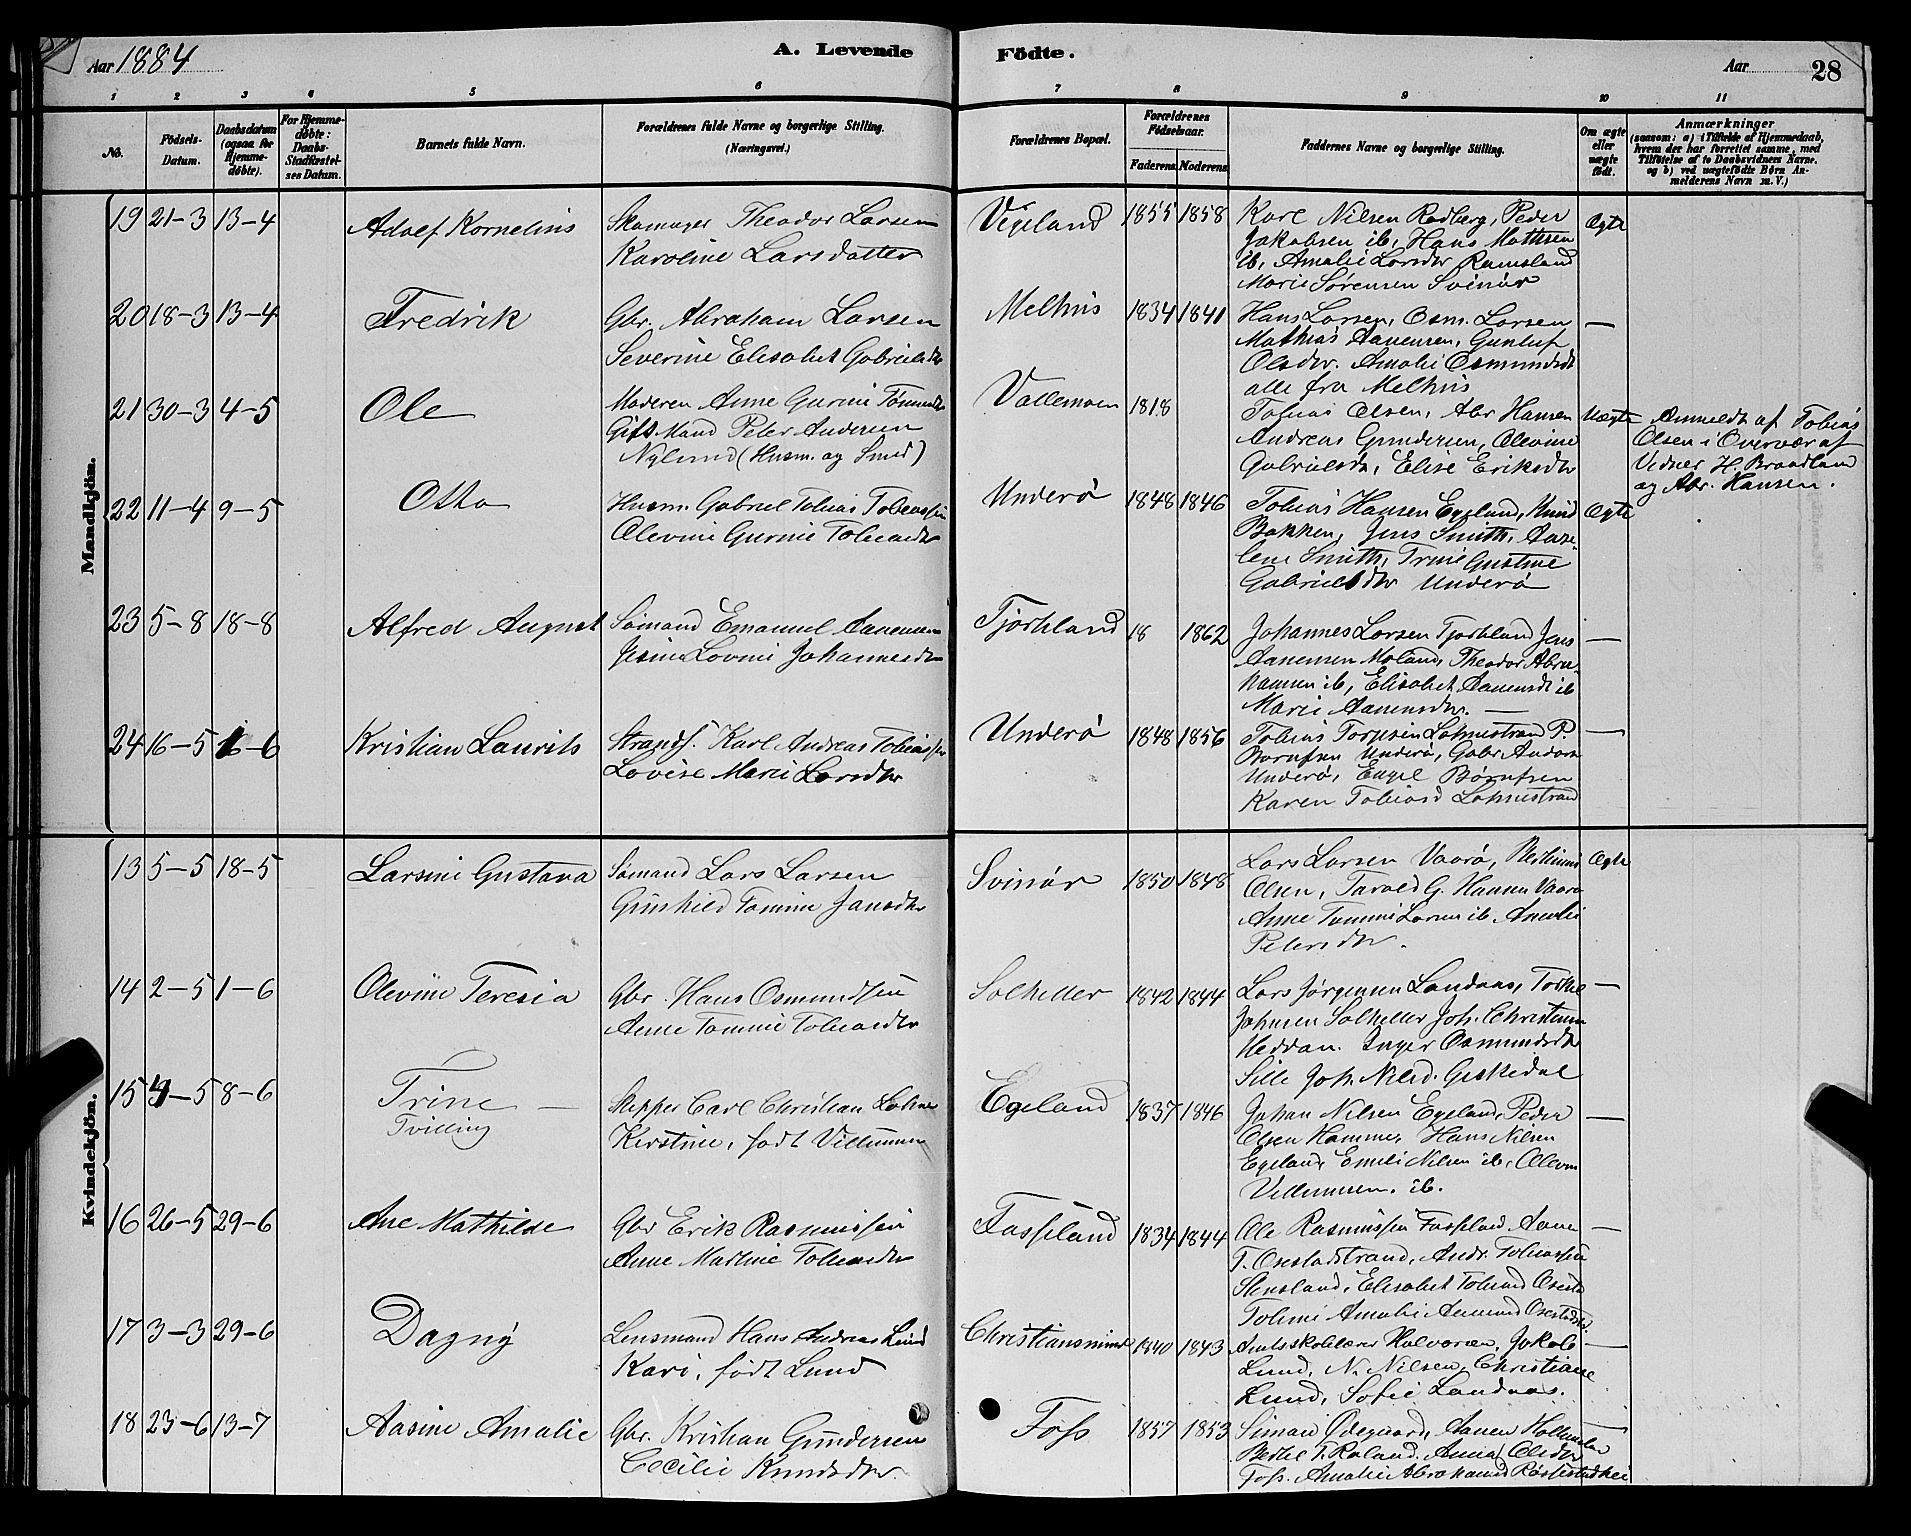 Aar 1884
A. Levende Födte.
Aar 28
1 2 3 4 5 6 7 8 9 10 11
No. Födsels-Datum. Daabsdatum (ogsaa for Hjemme-döbte). For Hjemme-döbte: Daabs-Stadfæstel-ses Datum. Barnets fulde Navn. Forældrenes fulde Navne og borgerlige Stilling. (Næringsvei.) Forældrenes Bopæl. Forældrenes Födselsaar. Faderens Moderens Faddernes Navne og borgerlige Stilling. Om ægte eller uægte födt. Anmærkninger
(saasom: a) i Tilfælde af Hjemmedaab,
hvem der har forrettet samme, med
Tilföielse af to Daabsvidners Navne.
og b) ved uægtefödte Börn An-
melderens Navn m. V.)
Mandkjön.
19 21-3 13-4 Adolf Kornelius Skomager Theodor Larsen Vigeland 1855 1858 Karl Nilsen Rodberg, Peder Ægte
Karoline Larsdatter Jakobsen ib, Hans Mathsen
ib, Amalie Larsdtr Ramsland
Marie Sørensen Svinør
20 18-3 13-4 Fredrik Gbr. Abraham Larsen Melhus 1834 1841 Hans Larsen, Osm. Larsen —
Severine Elisabet Gabrielsdtr Mathias Aanensen, Gunluf
Olsdtr. Amalie Osmundsdt
alle fra Melhus
21 30-3 4-5 Ole Moderen Anne Gurine Tømmesdtr Vallemoen 1818 Tobias Olsen, Abr Hansen Uægte Anmeldt af Tobias
Gift Mand Peter Andersen Andreas Gundersen, Olevine Olsen i Overvær af
Nylund (Husm. og Smed) Gabrielsdtr, Elise Eriksdtr Vidner H. Braadland
og Abr. Hansen.
22 11-4 9-5 Otto Husm. Gabriel Tobias Tobiassen Underø 1848 1846 Tobias Hansen Egeland, Knud Ægte
Olevine Gurine Tobiasdtr Bakken, Jens Smith,
lene Smith, Trine Gustine
Gabrielsdtr Underø
23 5-8 18-8 Alfred August Sømand Emanuel Aanensen Tjørkland 18 1862 Johannes Larsen Tjorkland Jens —
Lovine Johannesdtr Aanensen Moland, Theodor Abra-
hamsen ib, Elisabet Aanensdt ib
Marie Aanensdtr. —
24 16-5 1-6 Kristian Laurits Strands. Karl Andreas Tobiassen Underø 1848 1856 Tobias Torjusen Lohnestrand P. —
Lovise Marie Larsdtr Børufsen Underø, Gabr Anders
Underø, Engel Børufsen
Karen Tobiasd Lohnestrand
Kvindekjön.
13 5-5 18-5 Larsine Gustava Sømand Lars Larsen Svinør 1850 1848 Lars Larsen Vaarø, Ægte
Gunhild Tomine Jansdtr Olsen, Tarald G. Hansen Vaarø
Anne Tomine Larsen ib, Amalie
Petersdtr.
14 2-5 1-6 Olevine Teresia Gbr. Hans Osmundsen Solheller 1842 1844 Lars Jørgensen Landaas, —
Anne Tomine Tobiasdtr Johnsen Solheller Joh. Christensen
Heddan. Inger Osmundsdtr
Sille Joh. Nilsd. Geskedal
15 4-5 8-6 Trine — Skipper Carl Christian Lohne Egeland 1837 1846 Johan Nilsen Egeland, Peder —
Tvilling Kirstine, født Villumsen Olsen Hammer, Hans Nilsen
Egeland, Emilie Nilsen ib, Olevine
Villumsen. ib.
16 26-5 29-6 Ane Mathilde Gbr Erik Rasmussen Fasseland 1834 1844 Ole Rasmussen Fasseland Aanen —
Anne Martine Tobiasdtr T. Osestadstrand, Andr. Tobiassen
Stensland, Elisabet Tobiasd Osesta
Toline Amalie Aanensd Osestadstr.
17 3-3 29-6 Dagny Lensmand Hans Andreas Lund Christiansminde 1840 1843 Amtsskolelærer Halvorsen, Jakob —
Kari, født Lund Lund, N. Nilsen, Christiane
Lund, Sofie Landaas.
18 23-6 13-7 Aasine Amalie Gbr. Kristian Gundersen Foss 1857 1853 Simon Ødegaard, Aanen —
Cecilie Knudsdtr Bertel T. Roland, Anna Olsdtr
Foss. Amalie Abrahamsd Røstestadhei